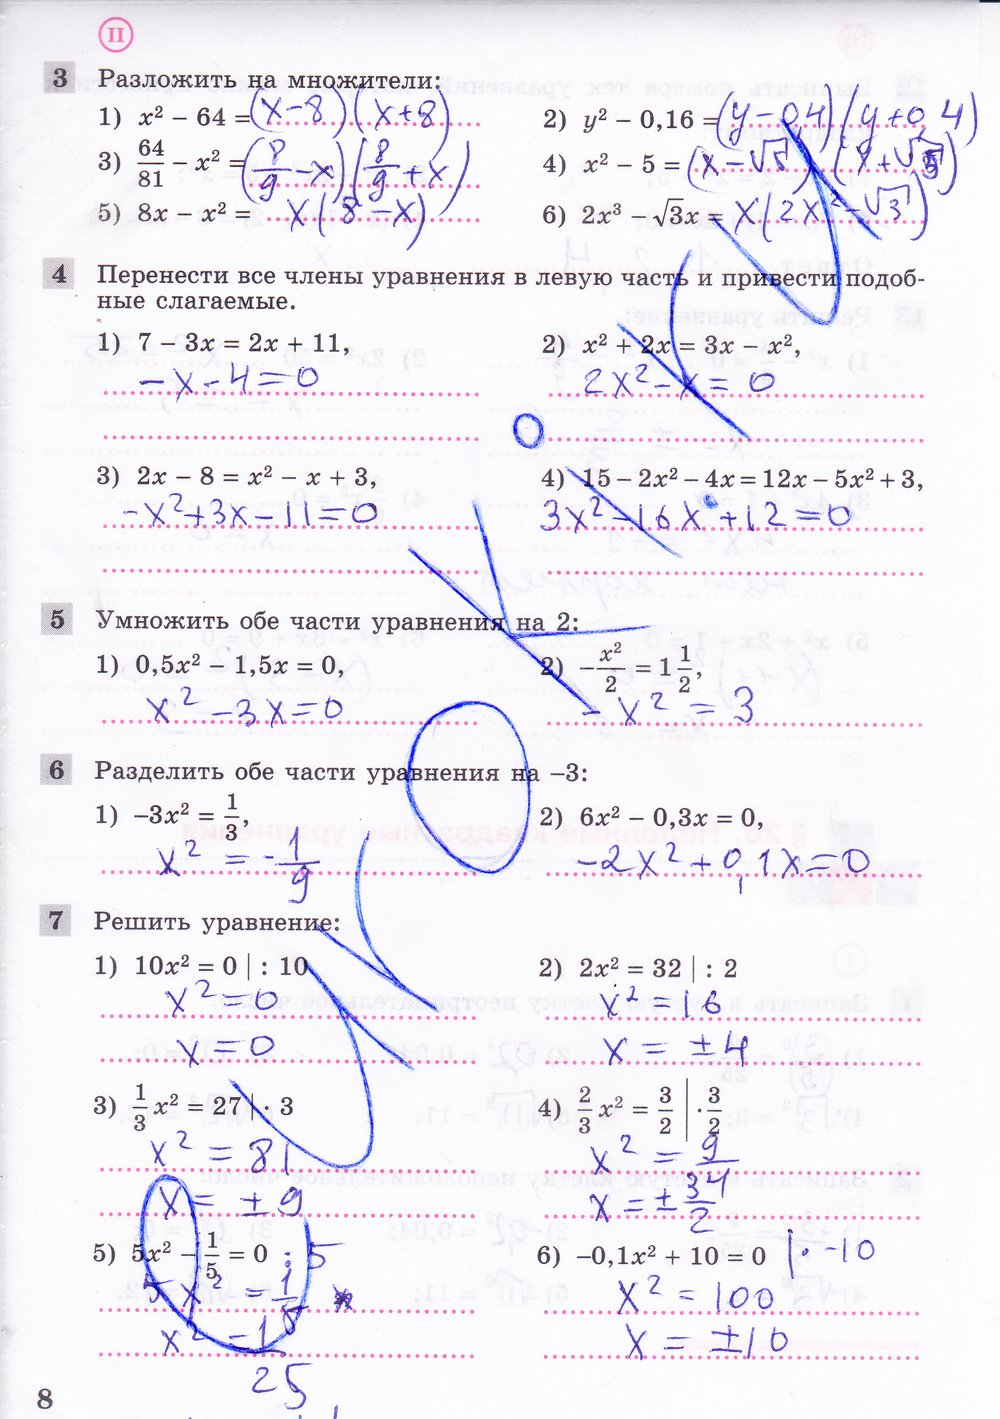 II
3 Разложить на множители:
1) x² − 64 = (x−8)(x+8)
2) y² − 0,16 = (y−0,4)(y+0,4)
3) 64/81 − x² = (8/9−x)(8/9+x)
4) x² − 5 = (x−√5)(x+√5)
5) 8x − x² = x(8−x)
6) 2x³ − √3x = x(2x²−√3)
4 Перенести все члены уравнения в левую часть и привести подоб-
ные слагаемые.
1) 7 − 3x = 2x + 11,
2) x² + 2x = 3x − x²,
−x−4=0
2x²−x=0
3) 2x − 8 = x² − x + 3,
4) 15 − 2x² − 4x = 12x − 5x² + 3,
−x²+3x−11=0
3x²−16x+12=0
5 Умножить обе части уравнения на 2:
1) 0,5x² − 1,5x = 0,
2) −x²/2 = 1 1/2,
x²−3x=0
−x²=3
6 Разделить обе части уравнения на −3:
1) −3x² = 1/3,
2) 6x² − 0,3x = 0,
x²=−1/9
−2x²+0,1x=0
7 Решить уравнение:
1) 10x² = 0 | : 10
2) 2x² = 32 | : 2
x²=0
x²=16
x=0
x=±4
3) 1/3 x² = 27 | · 3
4) 2/3 x² = 3/2 | · 3/2
x²=81
x²=9/4
x=±9
x=±3/2
5) 5x² − 1/5 = 0 :5
6) −0,1x² + 10 = 0 |·−10
5x²=1/5
x²=100
x²=1/25
x=±10
8